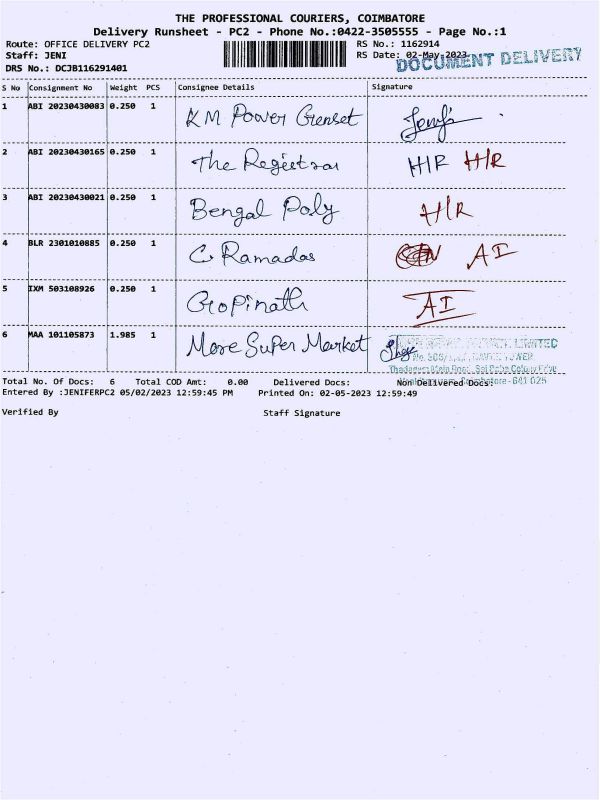 THE PROFESSIONAL COURIERS, COIMBATORE
Delivery Runsheet - PC2 - Phone No.:0422-3505555 - Page No.:1
Route: OFFICE DELIVERY PC2 RS No.: 1162914
Staff: JENI RS Date: 02-May-2023
DOCUMENT DELIVERY
DRS No.: DCJB116291401
S No Consignment No Weight PCS Consignee Details Signature
1 ABI 20230430083 0.250 1 KM Power Genset
2 ABI 20230430165 0.250 1 The Registrar H/R H/R
3 ABI 20230430021 0.250 1 Bengal Poly H/R
4 BLR 2301010885 0.250 1 C Ramadas AI
5 IXM 503108926 0.250 1 Gopinath AI
6 MAA 101105873 1.985 1 More Super Market
LIMITED
TOWER
Coimbatore - 641 025
Total No. Of Docs: 6 Total COD Amt: 0.00 Delivered Docs: Non Delivered Docs:
Entered By :JENIFERPC2 05/02/2023 12:59:45 PM Printed On: 02-05-2023 12:59:49
Verified By Staff Signature